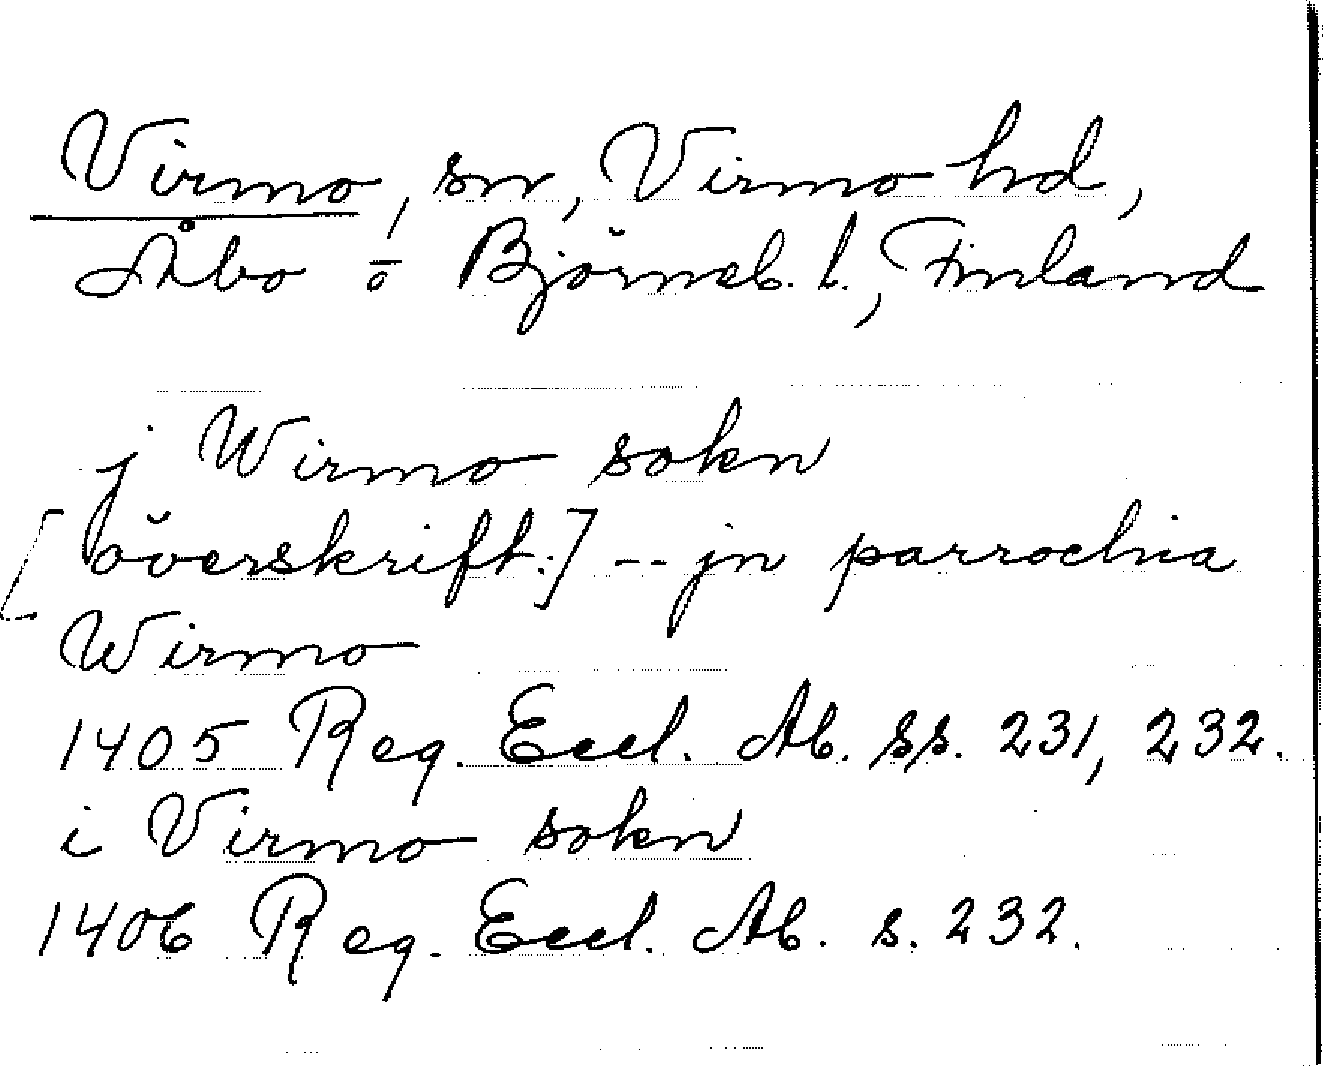 Virmo, sn, Virmo hd,
Åbo o Björneb. l., Finland
j Wirmo sokn
[överskrift.] -- jn parrochia
Wirmo
1405 Reg. Eccl. Ab. ss. 231, 232.
i Virmo sokn
1406 Reg. Eccl. Ab. s. 232.